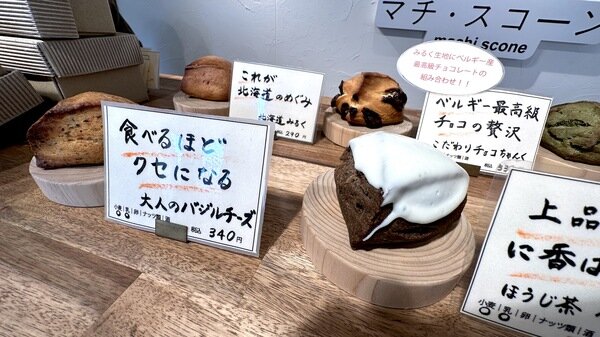 マチ・スコーン
machi scone
みるく生地にベルギー産
最高級チョコレートの
組み合わせ！！
これが
北海道のめぐみ
北海道みるく
税込 290円
ベルギー最高級
チョコの贅沢
こだわりチョコちゃんく
税込
食べるほど
クセになる
大人のバジルチーズ
小麦|乳|卵|ナッツ類|酒
税込 340円
上品
に香ば
ほうじ茶
小麦|乳|卵|ナッツ類|酒